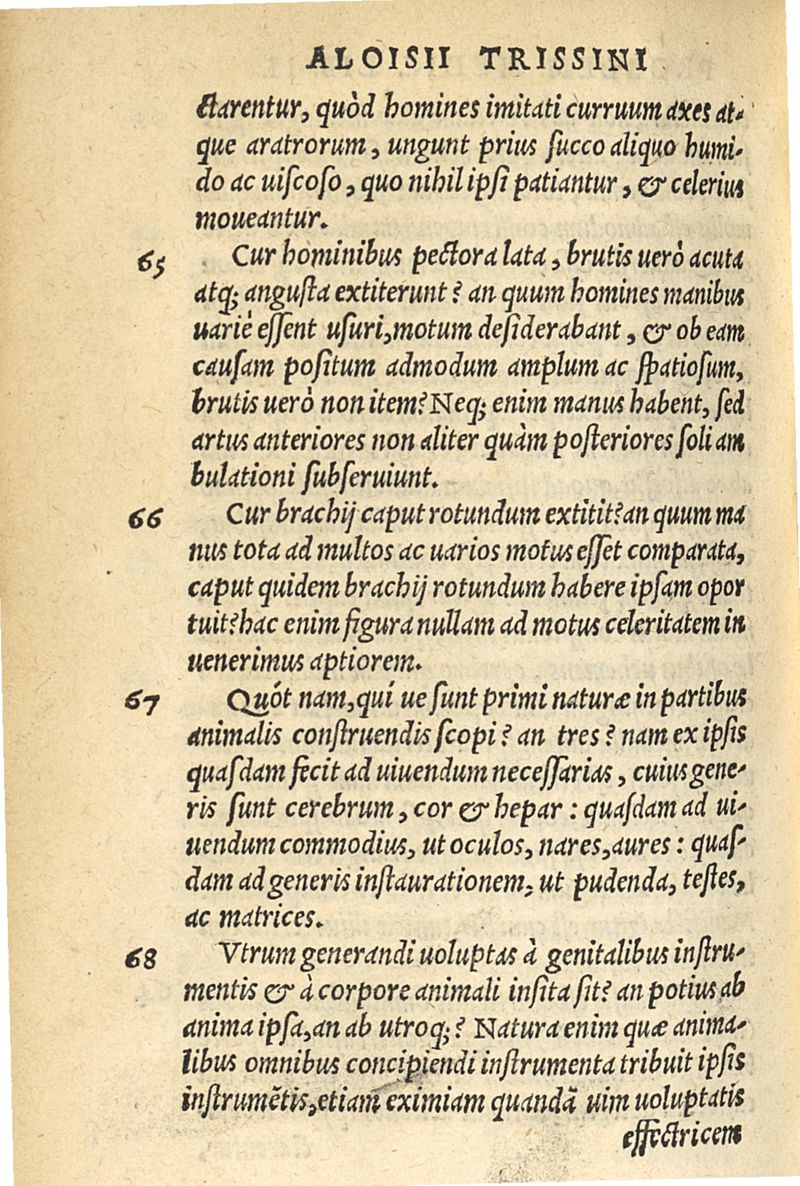 ALOISII TRISSINI
ctarentur, quòd homines imitati curruum axes at-
que aratrorum, ungunt prius ſucco aliquo humi-
do ac uiſcoſo, quo nihil ipſi patiantur, & celerius
moueantur.
65 Cur hominibus pectora lata, brutis uerò acuta
atq; anguſta extiterunt? an quum homines manibus
uariè eſſent uſuri, motum deſiderabant, & ob eam
cauſam poſitum admodum amplum ac ſpatioſum,
brutis uerò non item? Neq; enim manus habent, ſed
artus anteriores non aliter quàm poſteriores ſoli am
bulationi ſubſeruiunt.
66 Cur brachij caput rotundum extitit? an quum ma
nus tota ad multos ac uarios motus eſſet comparata,
caput quidem brachij rotundum habere ipſam opor
tuit? hac enim figura nullam ad motus celeritatem in
uenerimus aptiorem.
67 Quót nam, qui ue ſunt primi naturæ in partibus
animalis conſtruendis ſcopi? an tres? nam ex ipſis
quaſdam fecit ad uiuendum neceſſarias, cuius gene-
ris ſunt cerebrum, cor & hepar: quaſdam ad ui-
uendum commodius, ut oculos, nares, aures: quaſ-
dam ad generis inſtaurationem, ut pudenda, teſtes,
ac matrices.
68 Vtrum generandi uoluptas à genitalibus inſtru-
mentis & à corpore animali inſita ſit? an potius ab
anima ipſa, an ab utroq;? Natura enim quæ anima-
libus omnibus concipiendi inſtrumenta tribuit ipſis
inſtrumẽtis, etiam eximiam quandã uim uoluptatis
effectricem